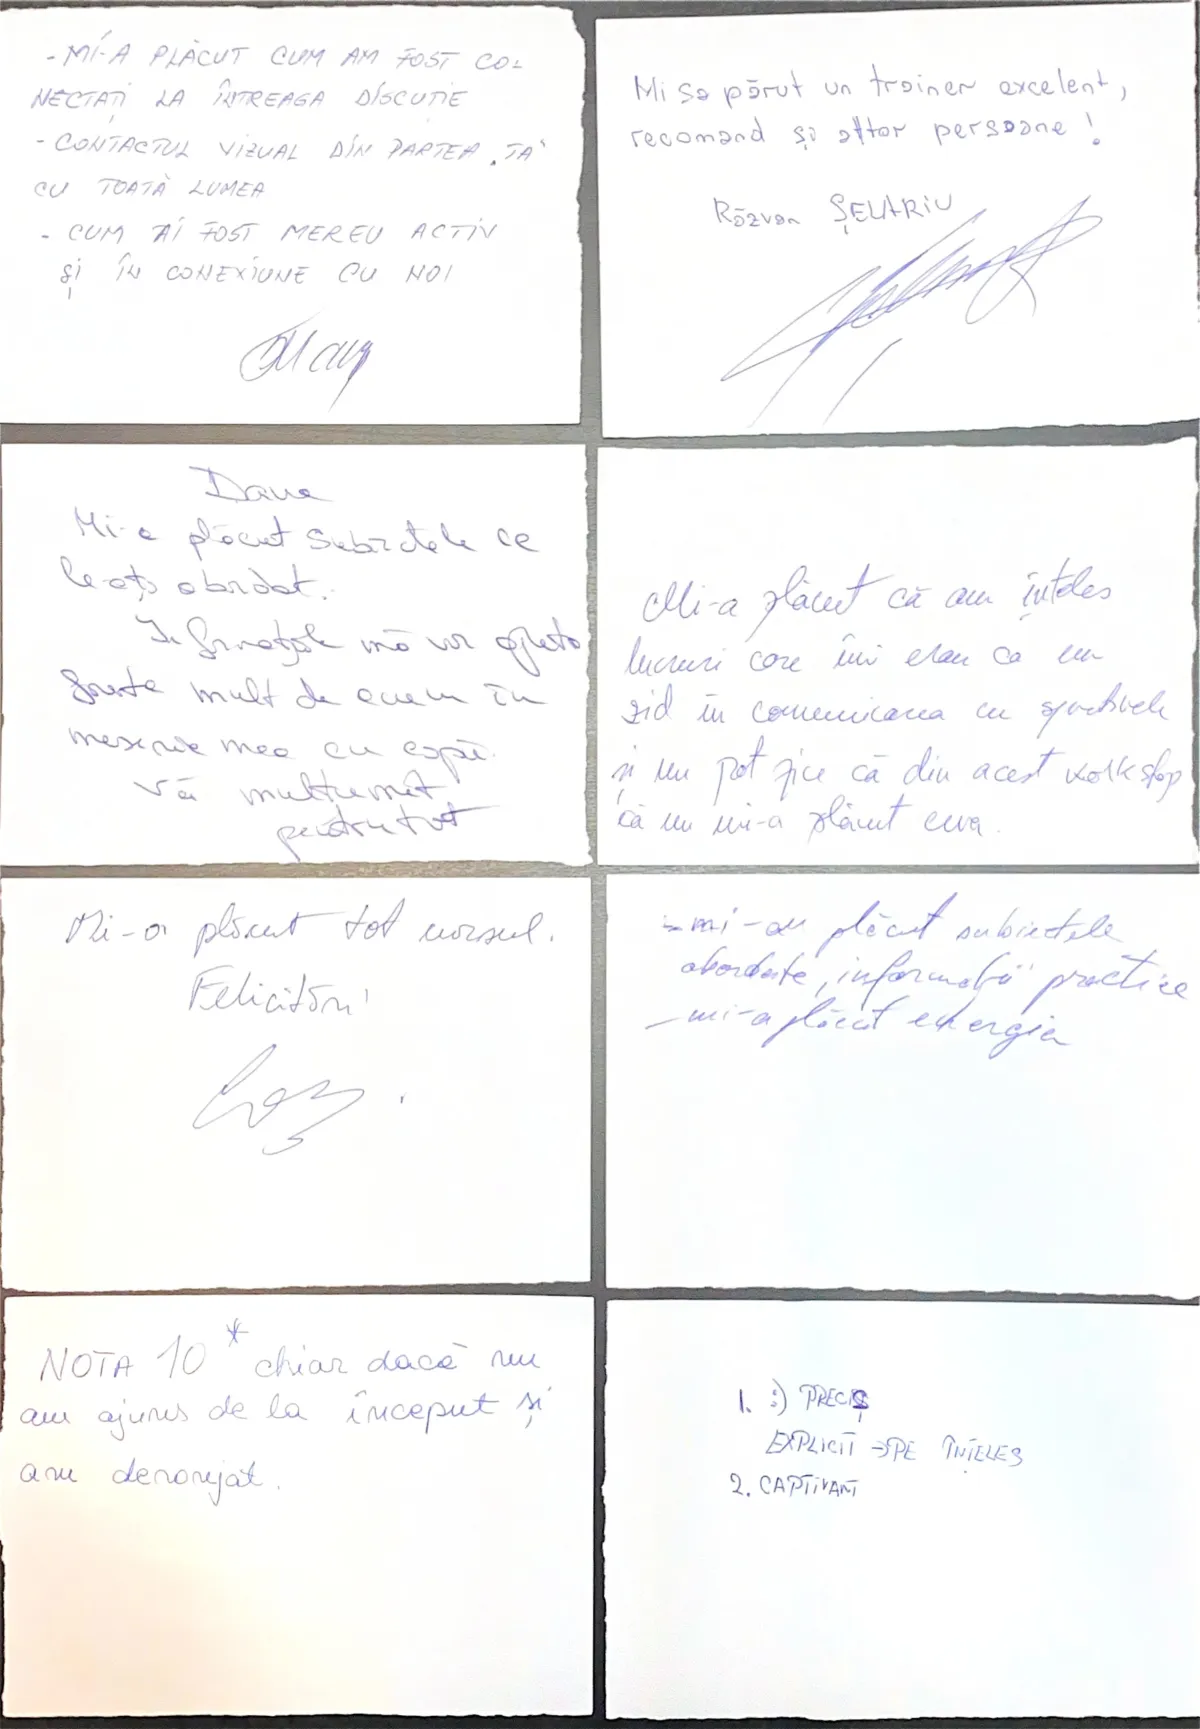 - MI-A PLĂCUT CUM AM FOST CO-
NECTAȚI LA ÎNTREAGA DISCUȚIE
- CONTACTUL VIZUAL DIN PARTEA „TA"
CU TOATĂ LUMEA
- CUM AI FOST MEREU ACTIV
ȘI ÎN CONEXIUNE CU NOI
Mi sa părut un trainer excelent,
recomand și altor persoane!
Răzvan ȘELARIU
Dana
Mi-a plăcut subiectele ce
le-ați abordat.
Informațiile mă vor ajuta
foarte mult de acum în
meseria mea cu copii.
Vă mulțumit
pentru tot
Mi-a plăcut că am înțeles
lucruri care îmi erau ca un
zid în comunicarea cu sportivele
și nu pot zice că din acest workshop
că nu mi-a plăcut ceva.
Mi-a plăcut tot cursul.
Felicitări!
- mi-au plăcut subiectele
abordate, informații practice
- mi-a plăcut energia
NOTA 10 * chiar dacă nu
am ajuns de la început și
am deranjat.
1. :) PRECIS
EXPLICIT → PE ÎNȚELES
2. CAPTIVANT